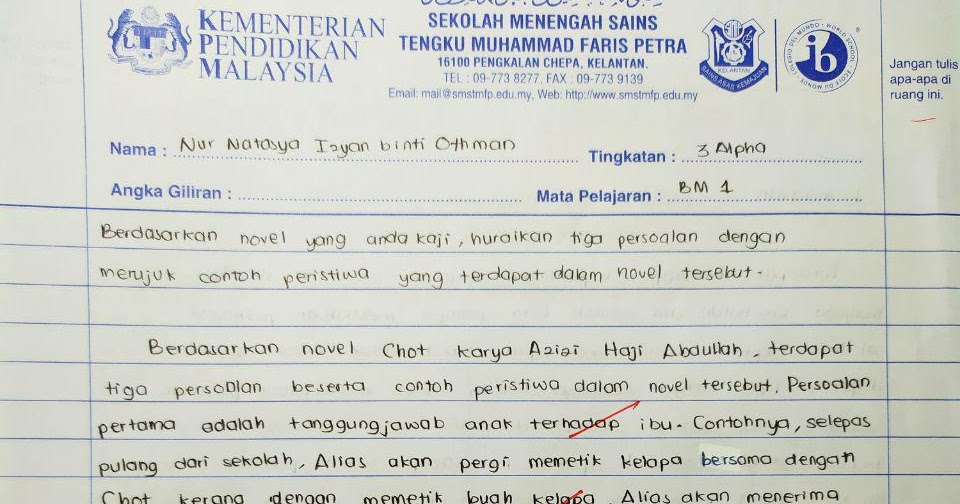 KEMENTERIAN
PENDIDIKAN
MALAYSIA
SEKOLAH MENENGAH SAINS
TENGKU MUHAMMAD FARIS PETRA
16100 PENGKALAN CHEPA, KELANTAN.
TEL : 09-773 8277, FAX : 09-773 9139
Email: mail@smstmfp.edu.my, Web: http://www.smstmfp.edu.my
KELANTAN
SAINS ASAS KEMAJUAN
ib
Jangan tulis
apa-apa di
ruang ini.
Nama : Nur Natasya Izyan binti Othman
Tingkatan : 3 Alpha
Angka Giliran :
Mata Pelajaran : BM 1
Berdasarkan novel yang anda kaji, huraikan tiga persoalan dengan
merujuk contoh peristiwa yang terdapat dalam novel tersebut.
Berdasarkan novel Chot karya Azizi Haji Abdullah, terdapat
tiga persoalan beserta contoh peristiwa dalam novel tersebut. Persoalan
pertama adalah tanggungjawab anak terhadap ibu. Contohnya, selepas
pulang dari sekolah, Alias akan pergi memetik kelapa bersama dengan
Chot kerana dengan memetik buah kelapa, Alias akan menerima